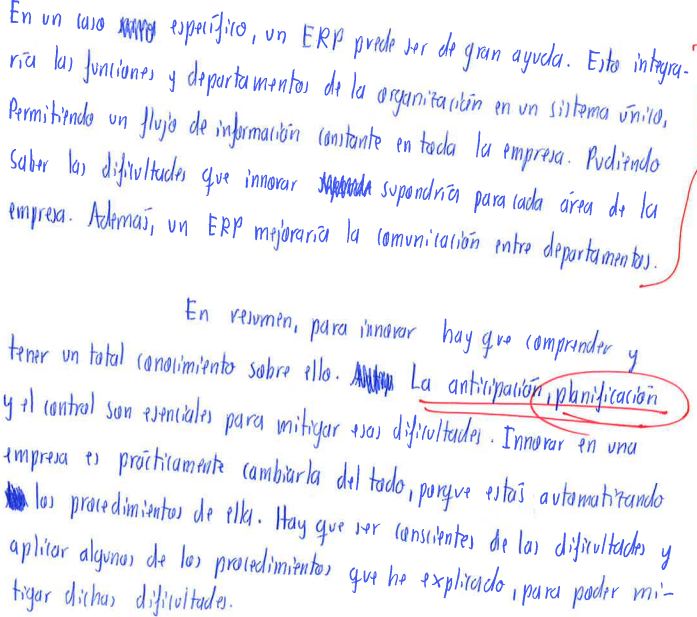 En un caso específico, un ERP puede ser de gran ayuda. Esto integra-
ría las funciones y departamentos de la organización en un sistema único,
Permitiendo un flujo de información constante en toda la empresa. Pudiendo
saber las dificultades que innovar supondría para cada área de la
empresa. Además, un ERP mejoraría la comunicación entre departamentos.
En resumen, para innovar hay que comprender y
tener un total conocimiento sobre ello. La anticipación, planificación
y el control son esenciales para mitigar esas dificultades. Innovar en una
empresa es prácticamente cambiarla del todo, porque estás automatizando
los procedimientos de ella. Hay que ser conscientes de las dificultades y
aplicar algunos de los procedimientos que he explicado, para poder mi-
tigar dichas dificultades.